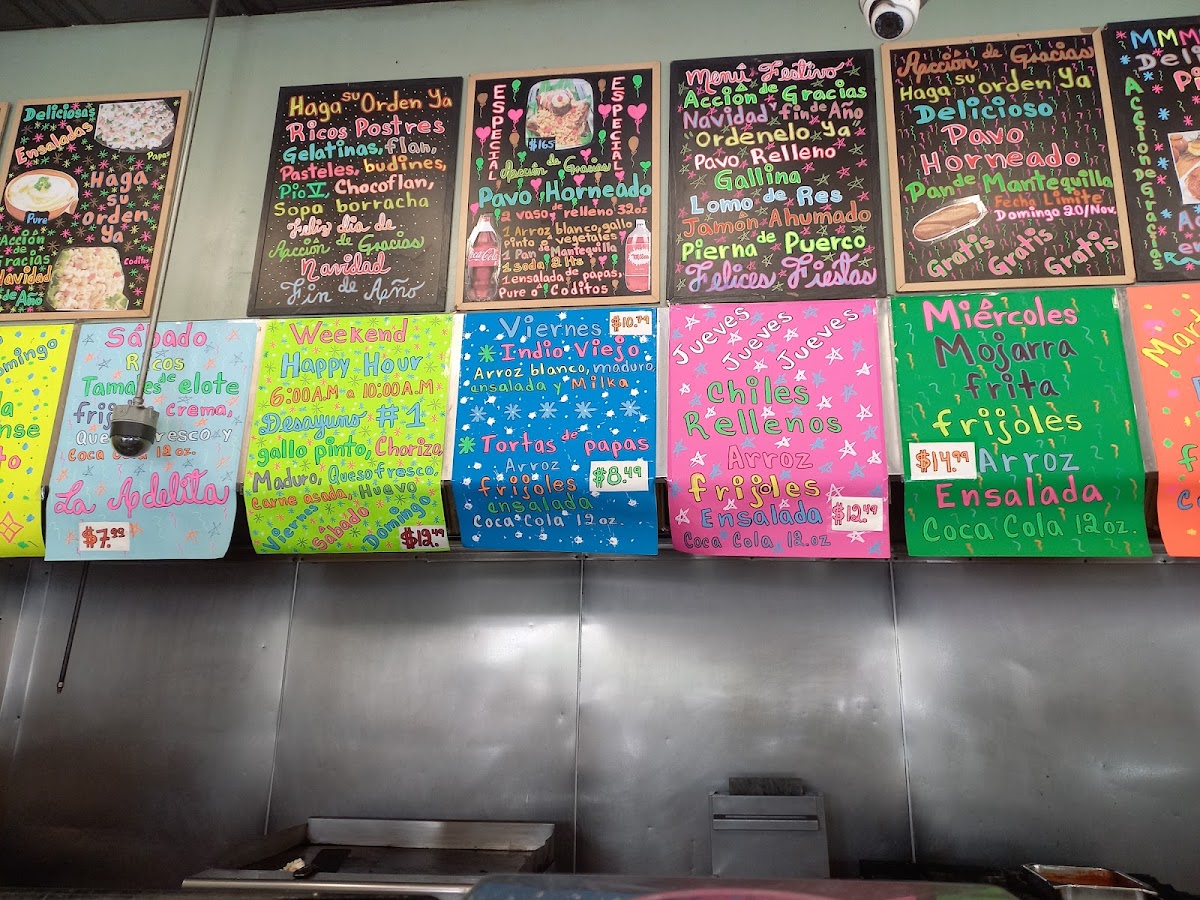 Deliciosas
Ensaladas
Papas
Haga
su
Orden
Ya
Pure
Acción
de
Gracias
Navidad
de Año
Coditos
Haga su Orden Ya
Ricos Postres
Gelatinas, flan,
Pasteles, budines,
Pio V, Chocoflan,
Sopa borracha
Feliz día de
Acción de Gracias
Navidad
Fin de Año
ESPECIAL
ESPECIAL
$165
Acción de Gracias
Pavo Horneado
2 vaso de relleno 32oz
1 Arroz blanco, gallo
Pinto o vegetales
1 Pan de Mantequilla
1 soda 2 lts
1 ensalada de papas,
Pure o Coditos
Coca-Cola
Milca
Menú Festivo
Acción de Gracias
Navidad fin de Año
"Ordenelo Ya
Pavo Relleno
Gallina
Lomo de Res
Jamón Ahumado
Pierna de Puerco
Felices Fiestas
Acción de Gracias
Haga su Orden Ya
Delicioso
Pavo
Horneado
Pan de Mantequilla
Fecha Limite
Domingo 20/Nov.
Gratis Gratis Gratis
Acción de Gracias
omingo
nse
Sabado
Ricos
Tamales de elote
frijo Crema,
Que fresco y
Coca Cola 12oz.
La Adelita
$7.99
Weekend
Happy Hour
6:00A.M a 10:00A.M
Desayuno #1
gallo pinto, Chorizo,
Maduro, Queso fresco,
Carne asada, Huevo
Viernes Sabado Domingo
$12.49
Viernes
$10.79
Indio Viejo
Arroz blanco, maduro,
ensalada y Milka
Tortas de papas
Arroz
frijoles
ensalada
$8.49
Coca Cola 12oz.
Jueves Jueves Jueves
Chiles
Rellenos
Arroz
frijoles
Ensalada
$12.49
Coca Cola 12oz.
Miércoles
Mojarra
frita
frijoles
$14.99
Arroz
Ensalada
Coca Cola 12oz.